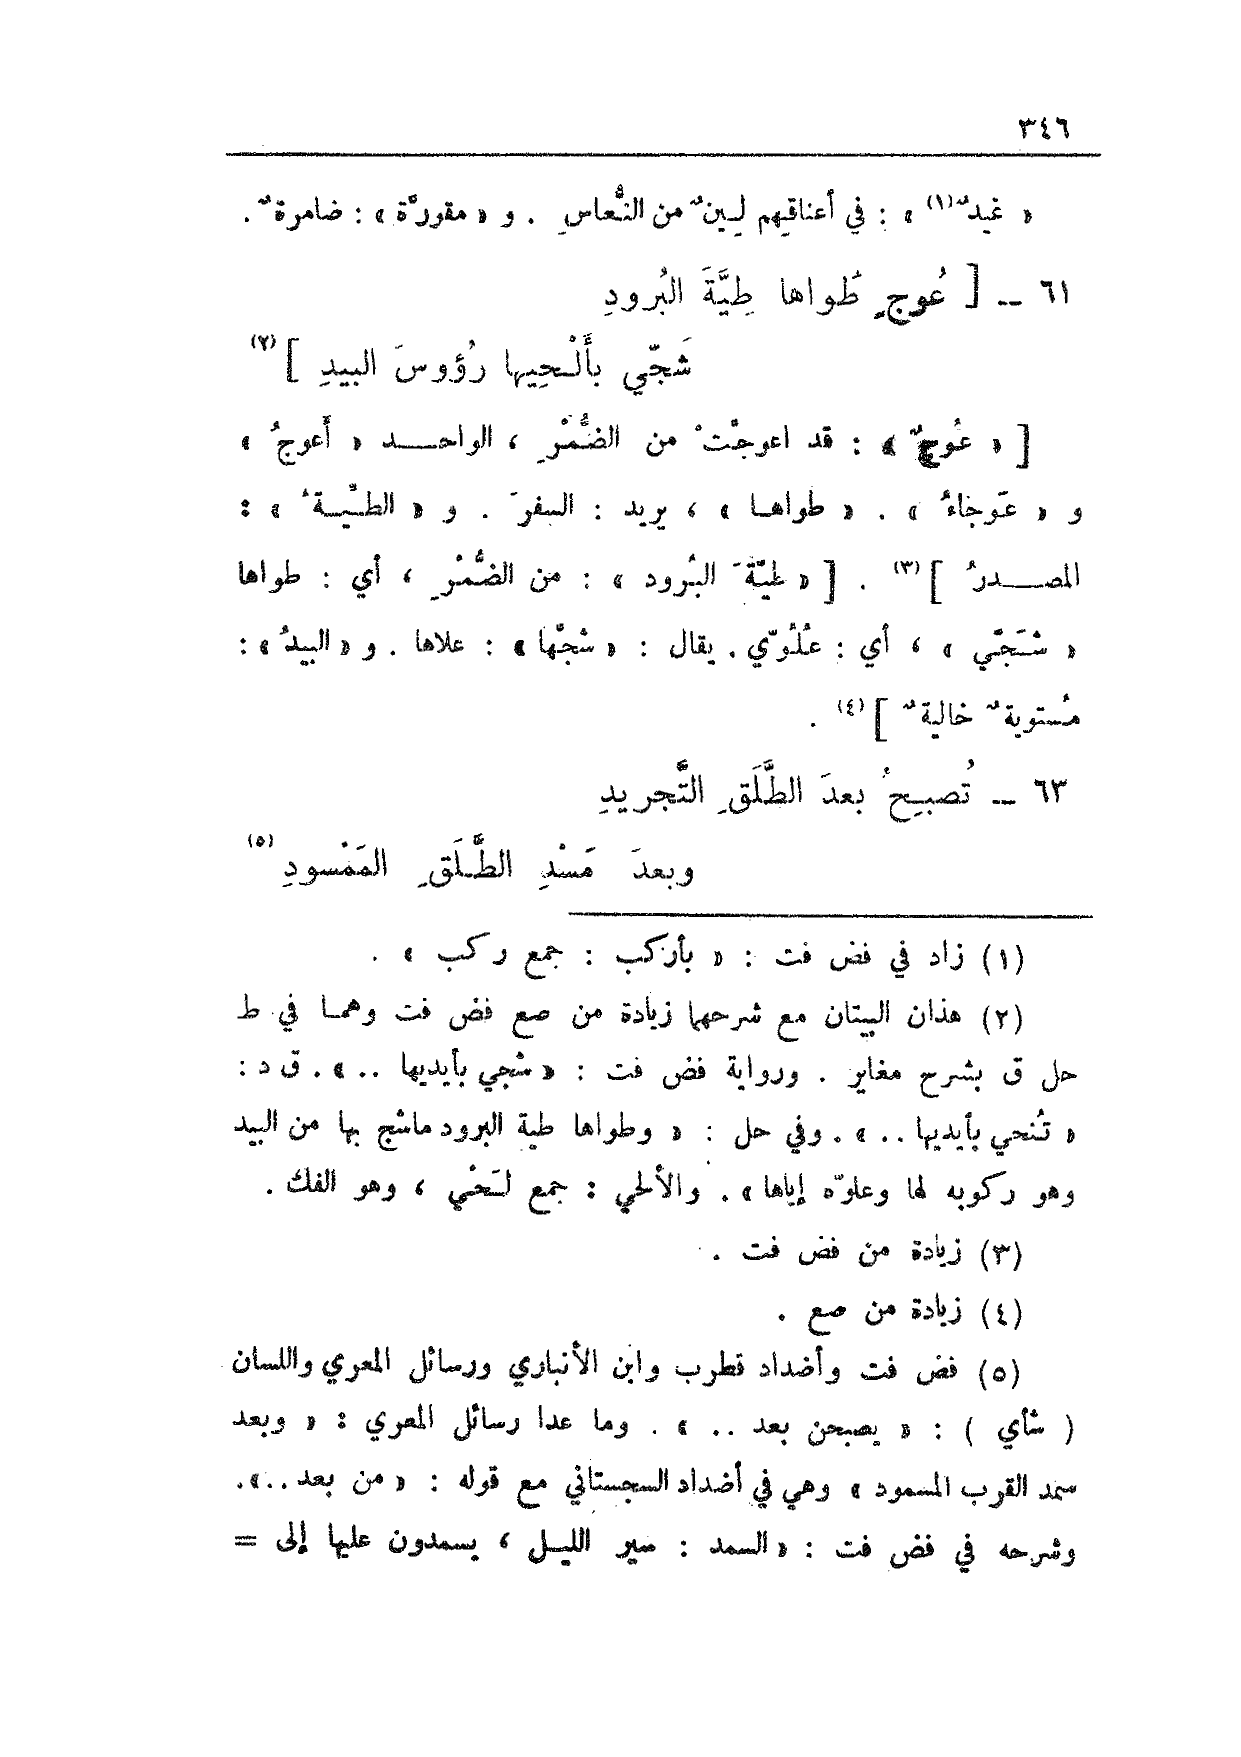 ٣٤٦
« غيدٌ(١) » : في أعناقِهم لِينٌ من النُّعاسِ . و « مقورَّة » : ضامرةٌ .
٦١ ــ [ عُوجٍ طَواها طِيَّةَ البُرودِ
شَجّي بأَلْحِيها رُؤوسَ البيدِ ](٢)
[ « عُوجٌ » : قد اعوجَّتْ من الضُّمْرِ ، الواحد « أَعوجُ »
و « عَوجاءُ » . « طواها » ، يريد : السفرَ . و « الطيَّةُ » :
المصدرُ ](٣) . [ « طيَّةَ البُرود » : من الضُّمْرِ ، أي : طواها
« شَجّي » ، أي : عُلُوّي . يقال : « شجَّها » : علاها . و « البيدُ » :
مُستويةٌ خاليةٌ ](٤) .
٦٣ ــ تُصبِحُ بعدَ الطَّلَقِ التَّجريدِ
وبعدَ مَسْدِ الطَّلَقِ المَمْسودِ(٥)
(١) زاد في فض فت : « بأركب : جمع ركب » .
(٢) هذان البيتان مع شرحهما زيادة من صع فض فت وهما في ط
حل ق بشرح مغاير . ورواية فض فت : « شجي بأيديها .. » . ق د :
« تُنحي بأيديها .. » . وفي حل : « وطواها طية البرود ماشج بها من البيد
وهو ركوبه لها وعلوّه إياها » . والألحي : جمع لَحْي ، وهو الفك .
(٣) زيادة من فض فت .
(٤) زيادة من صع .
(٥) فض فت وأضداد قطرب وابن الأنباري ورسائل المعري واللسان
( شأي ) : « يصبحن بعد .. » . وما عدا رسائل المعري : « وبعد
سمد القرب المسمود » وهي في أضداد السجستاني مع قوله : « من بعد .. » .
وشرحه في فض فت : « السمد : سير الليل ، يسمدون عليها إلى =